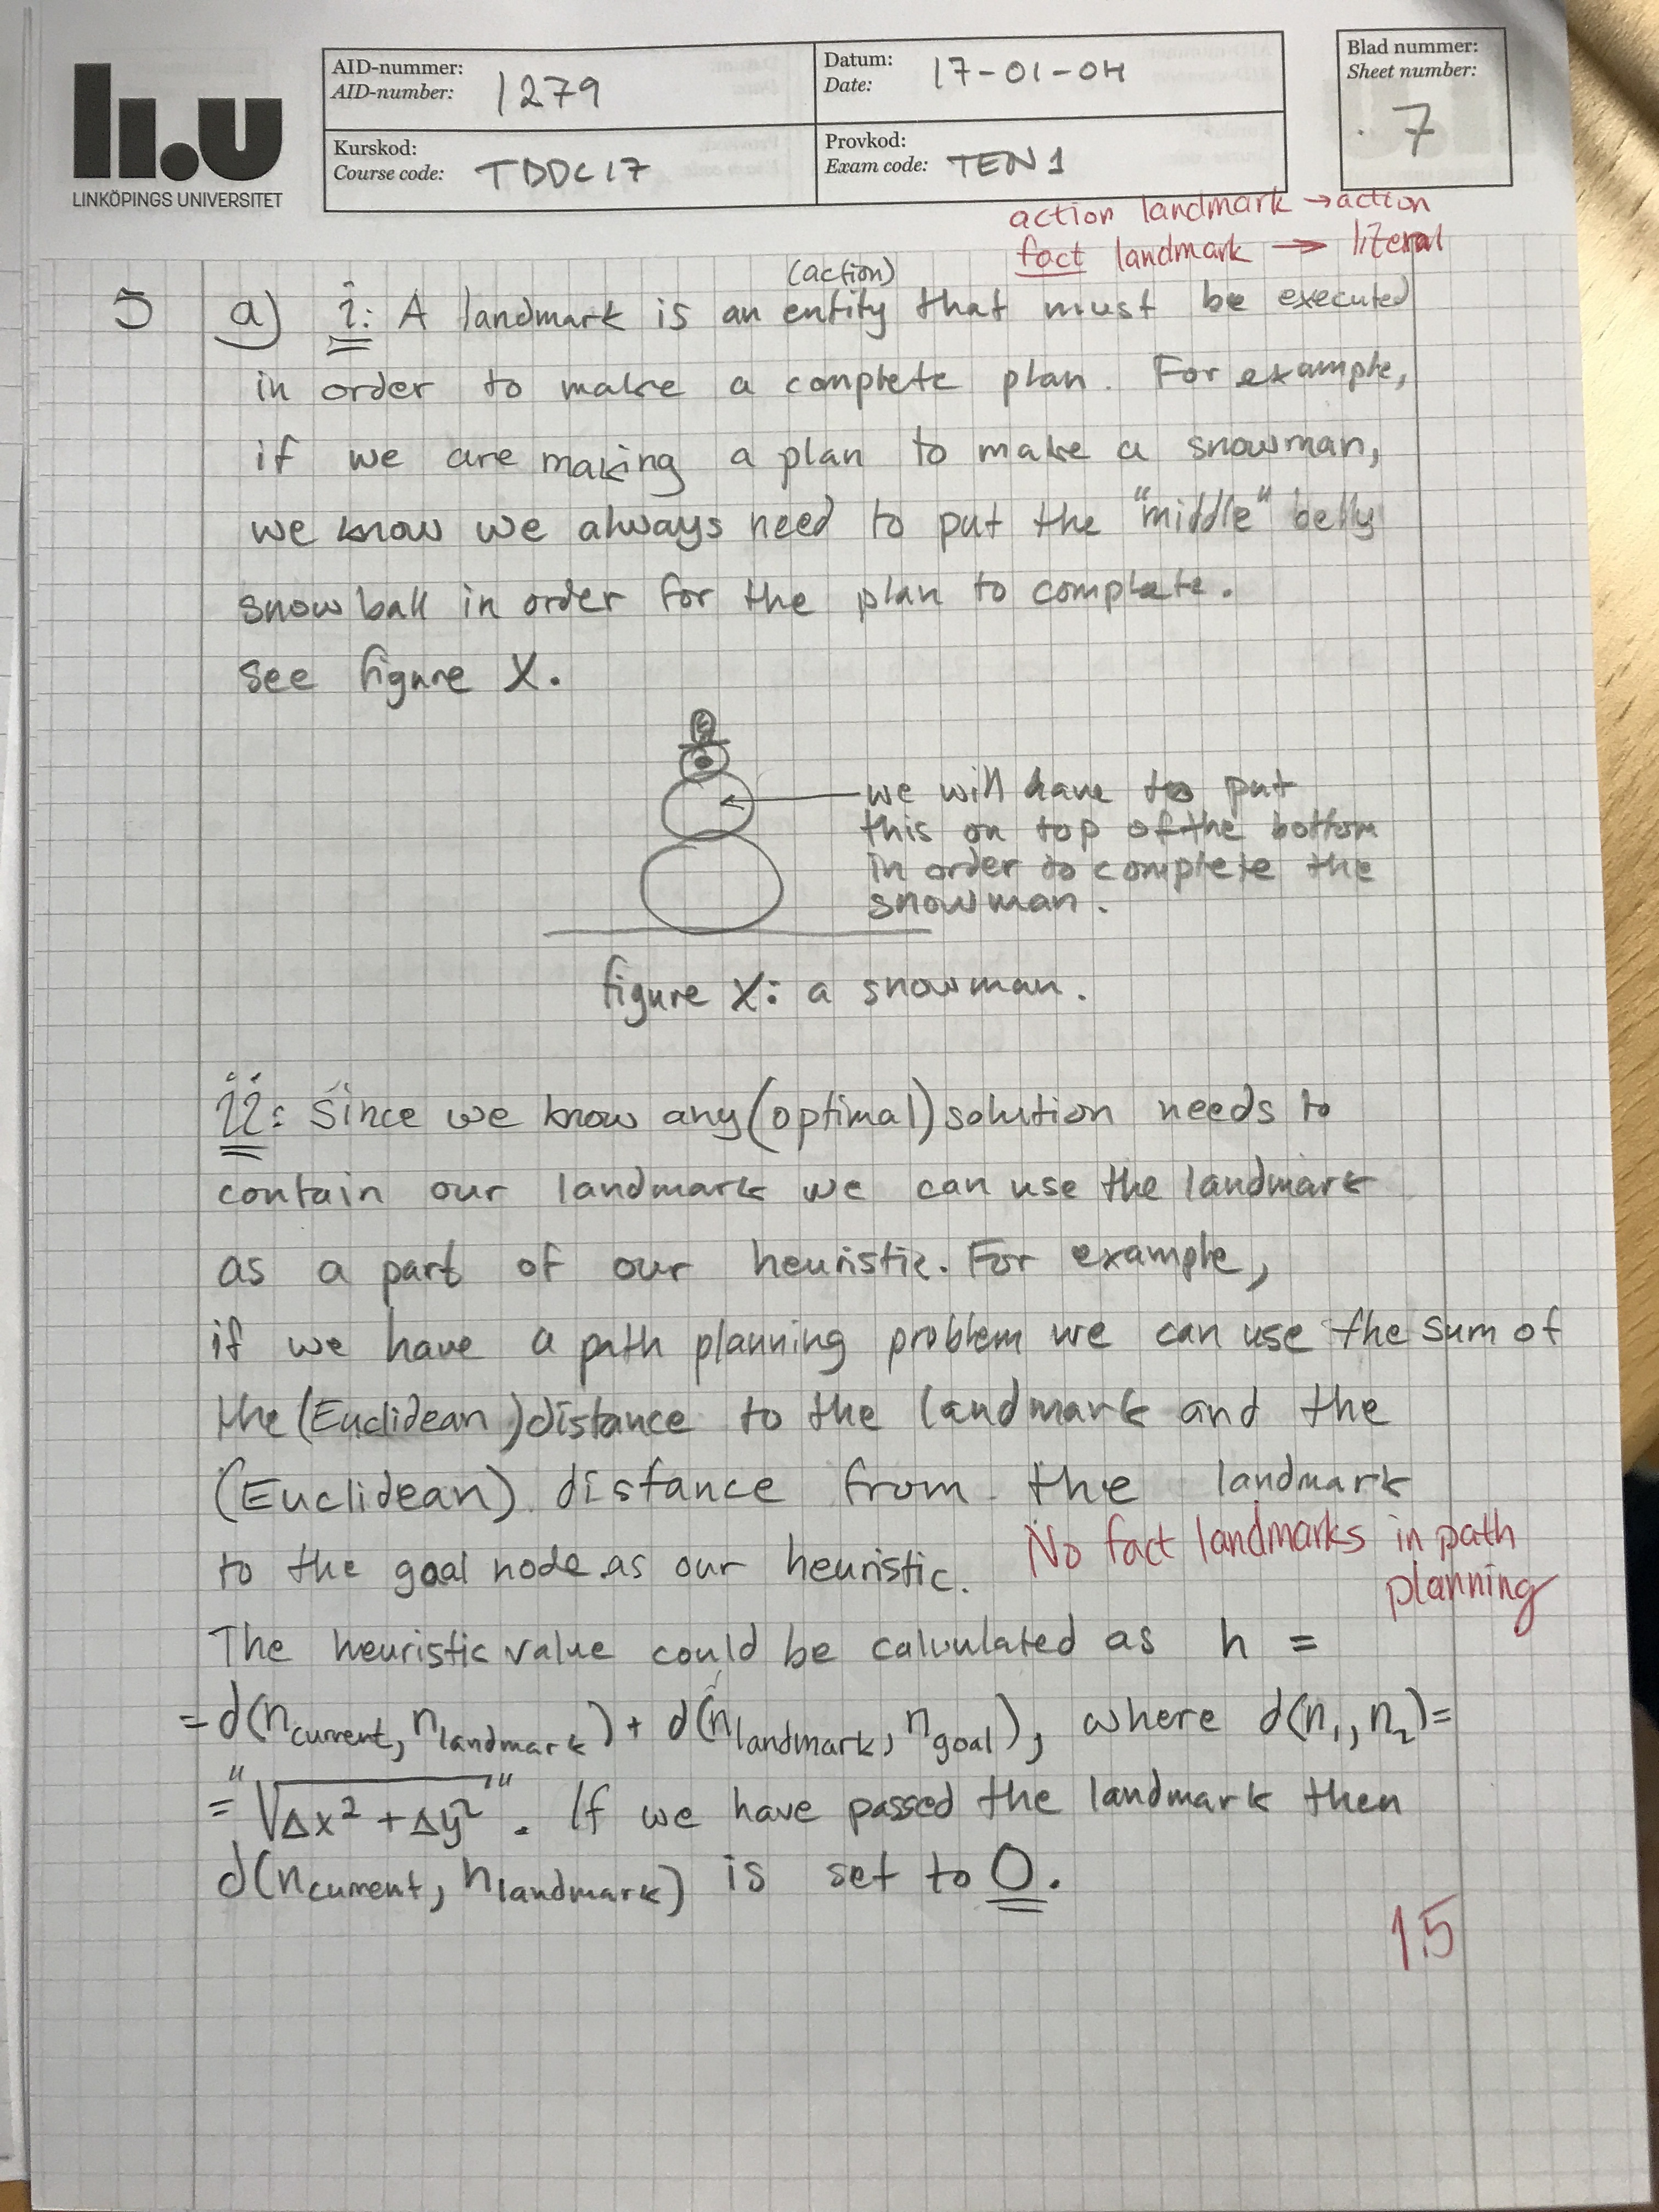 li.u
LINKÖPINGS UNIVERSITET
AID-nummer:
AID-number: 1279
Datum:
Date: 17-01-04
Kurskod:
Course code: TDDC17
Provkod:
Exam code: TEN1
Blad nummer:
Sheet number:
7
action landmark → action
fact landmark → literal
(action)
5 a) i: A landmark is an entity that must be executed
in order to make a complete plan. For example,
if we are making a plan to make a snowman,
we know we always need to put the "middle" belly
snowball in order for the plan to complete.
see figure X.
we will have to put
this on top of the bottom
in order to complete the
snowman.
figure X: a snowman.
ii: Since we know any (optimal) solution needs to
contain our landmark we can use the landmark
as a part of our heuristic. For example,
if we have a path planning problem we can use the sum of
the (Euclidean) distance to the landmark and the
(Euclidean) distance from the landmark
to the goal node as our heuristic.
No fact landmarks in path
planning
The heuristic value could be calculated as h =
= d(n_current, n_landmark) + d(n_landmark, n_goal), where d(n₁, n₂) =
= "√Δx² + Δy²". If we have passed the landmark then
d(n_current, n_landmark) is set to 0.
1.5